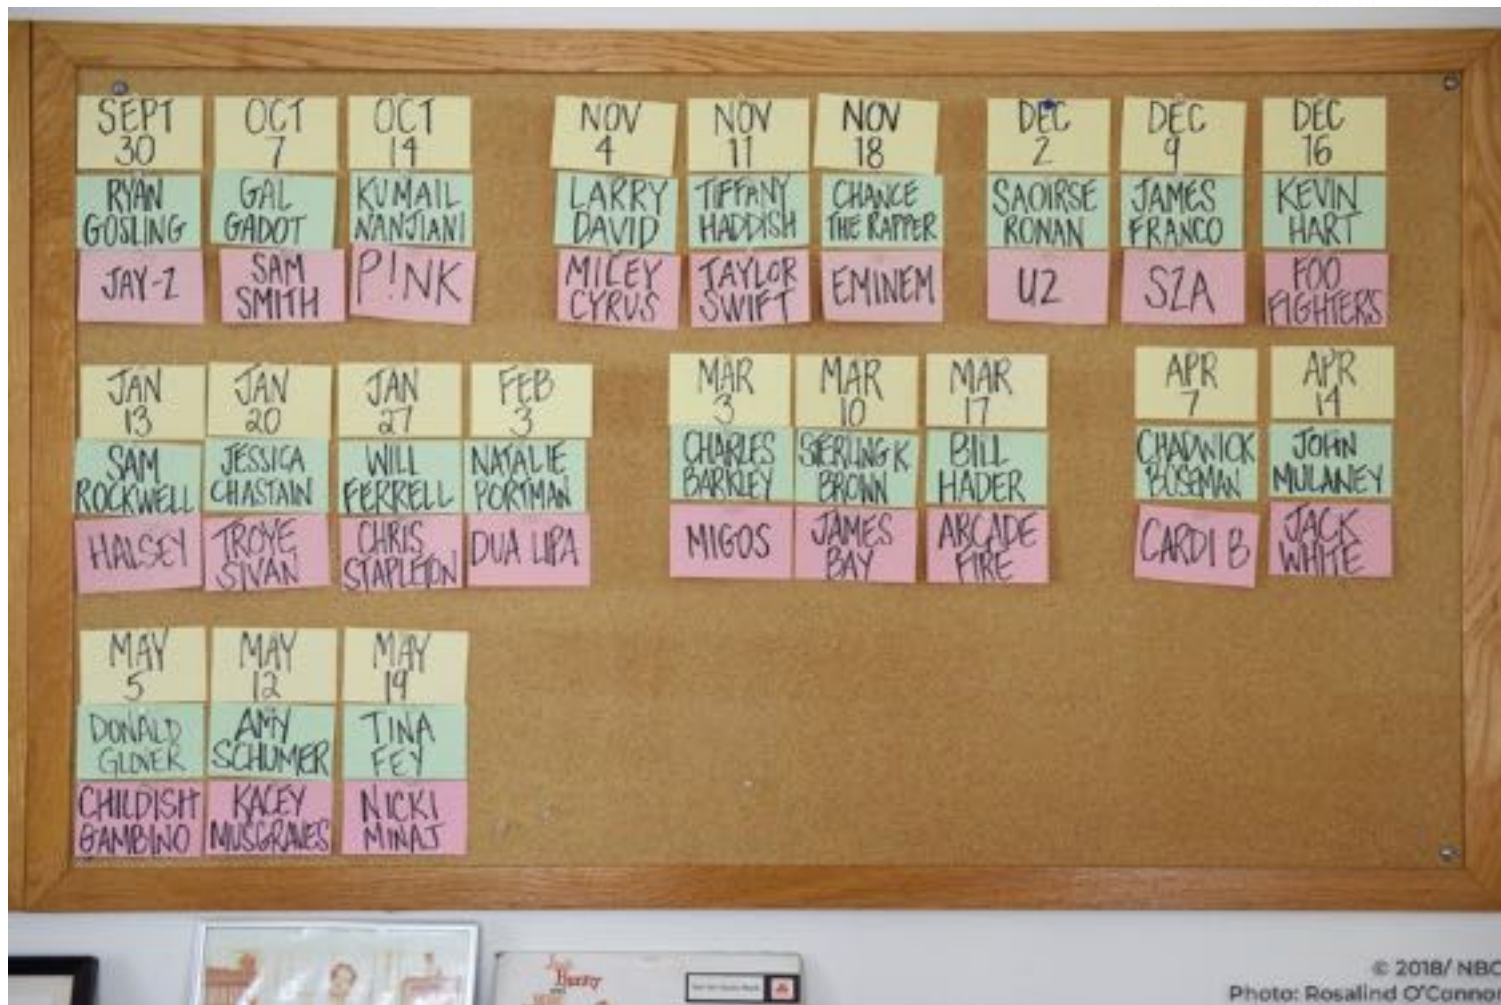 SEPT
30
RYAN
GOSLING
JAY-Z
OCT
7
GAL
GADOT
SAM
SMITH
OCT
14
KUMAIL
NANJIANI
P!NK
NOV
4
LARRY
DAVID
MILEY
CYRUS
NOV
11
TIFFANY
HADDISH
TAYLOR
SWIFT
NOV
18
CHANCE
THE RAPPER
EMINEM
DEC
2
SAOIRSE
RONAN
U2
DEC
9
JAMES
FRANCO
SZA
DEC
16
KEVIN
HART
FOO
FIGHTERS
JAN
13
SAM
ROCKWELL
HALSEY
JAN
20
JESSICA
CHASTAIN
TROYE
SIVAN
JAN
27
WILL
FERRELL
CHRIS
STAPLETON
FEB
3
NATALIE
PORTMAN
DUA LIPA
MAR
3
CHARLES
BARKLEY
MIGOS
MAR
10
STERLING K
BROWN
JAMES
BAY
MAR
17
BILL
HADER
ARCADE
FIRE
APR
7
CHADWICK
BOSEMAN
CARDI B
APR
14
JOHN
MULANEY
JACK
WHITE
MAY
5
DONALD
GLOVER
CHILDISH
GAMBINO
MAY
12
AMY
SCHUMER
KACEY
MUSGRAVES
MAY
19
TINA
FEY
NICKI
MINAJ
Benny
© 2018/ NBC
Photo: Rosalind O'Connor